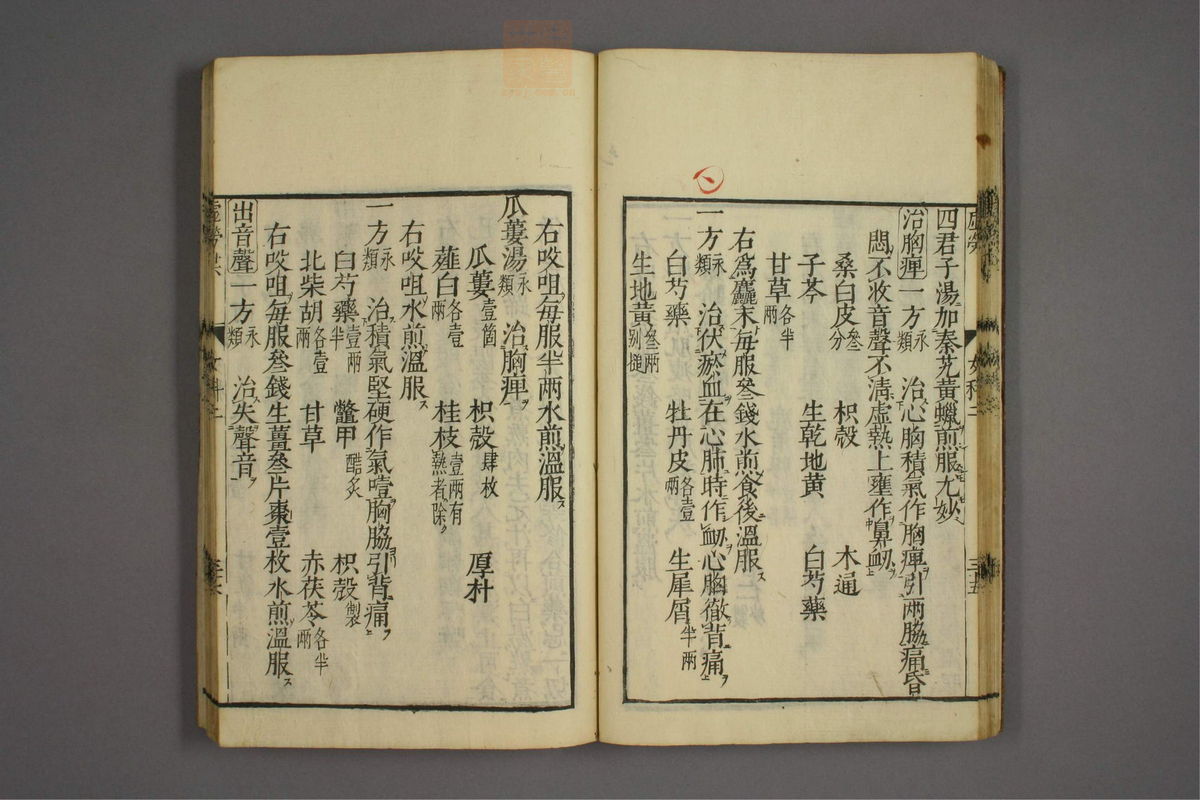 四君子湯加秦艽黃蠟煎服尤妙
治胸痺一方永類　治心胸積氣作胸痺引兩脇痛昏
悶不收音聲不淸虛熱上壅作鼻衂
桑白皮叁分　枳殼　木通
子芩　生乾地黃　白芍藥
甘草各半兩
右爲麤末每服叁錢水煎食後溫服
一方永類　治伏瘀血在心肺時作衂心胸徹背痛
白芍藥　牡丹皮各壹兩　生犀屑半兩
生地黃叁兩別搥
右㕮咀每服半兩水煎溫服
瓜蔞湯永類　治胸痺
瓜蔞壹箇　枳殼肆枚　厚朴
薤白各壹兩　桂枝壹兩有熱者除
右㕮咀水煎溫服
一方永類　治積氣堅硬作氣噎胸脇引背痛
白芍藥壹兩半　鼈甲醋炙　枳殼製
北柴胡各壹兩　甘草　赤茯苓各半兩
右㕮咀每服叁錢生薑叁片棗壹枚水煎溫服
出音聲一方永類　治失聲音